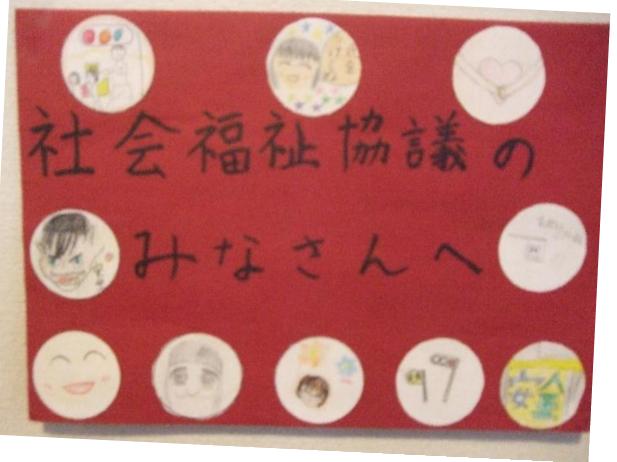 社会福祉協議の
みなさんへ